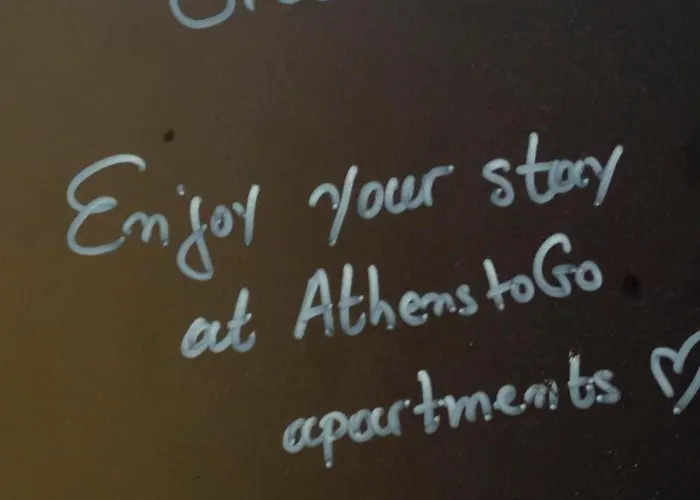 Enjoy your stay
at AthenstoGo
apartments ♡